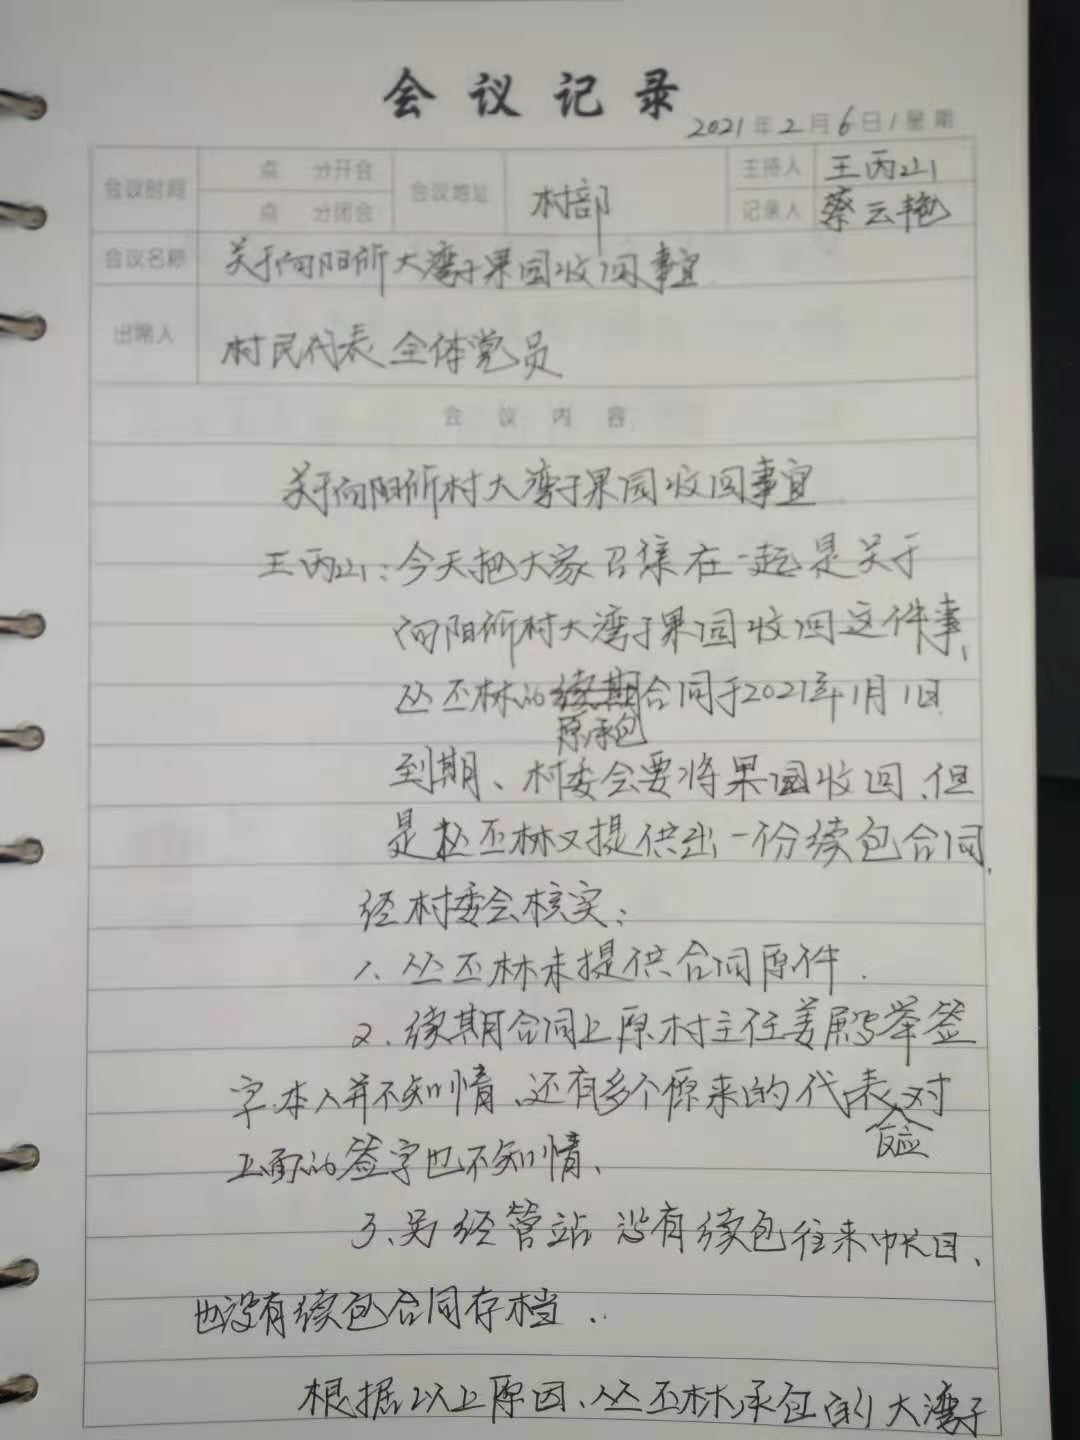 会议记录
2021年2月6日 星期
会议时间 点 分开会 会议地址 村部 主持人 王丙山
点 分闭会 记录人 蔡云艳
会议名称 关于向阳所大湾子果园收回事宜
出席人 村民代表 全体党员
会议内容
关于向阳所村大湾子果园收回事宜
王丙山:今天把大家召集在一起是关于
向阳所村大湾子果园收回这件事、
丛丕林的合同于2021年1月1日
原承包
到期、村委会要将果园收回、但
是丕林又提供出一份续包合同、
经村委会核实:
1、丛丕林未提供合同原件.
2、续期合同上原村主任姜殿举签
字本人并不知情、还有多个原来的代表对
反应
上面的签字也不知情、
3、另经管站没有续包往来帐目、
也没有续包合同存档..
根据以上原因、丛丕林承包的大湾子